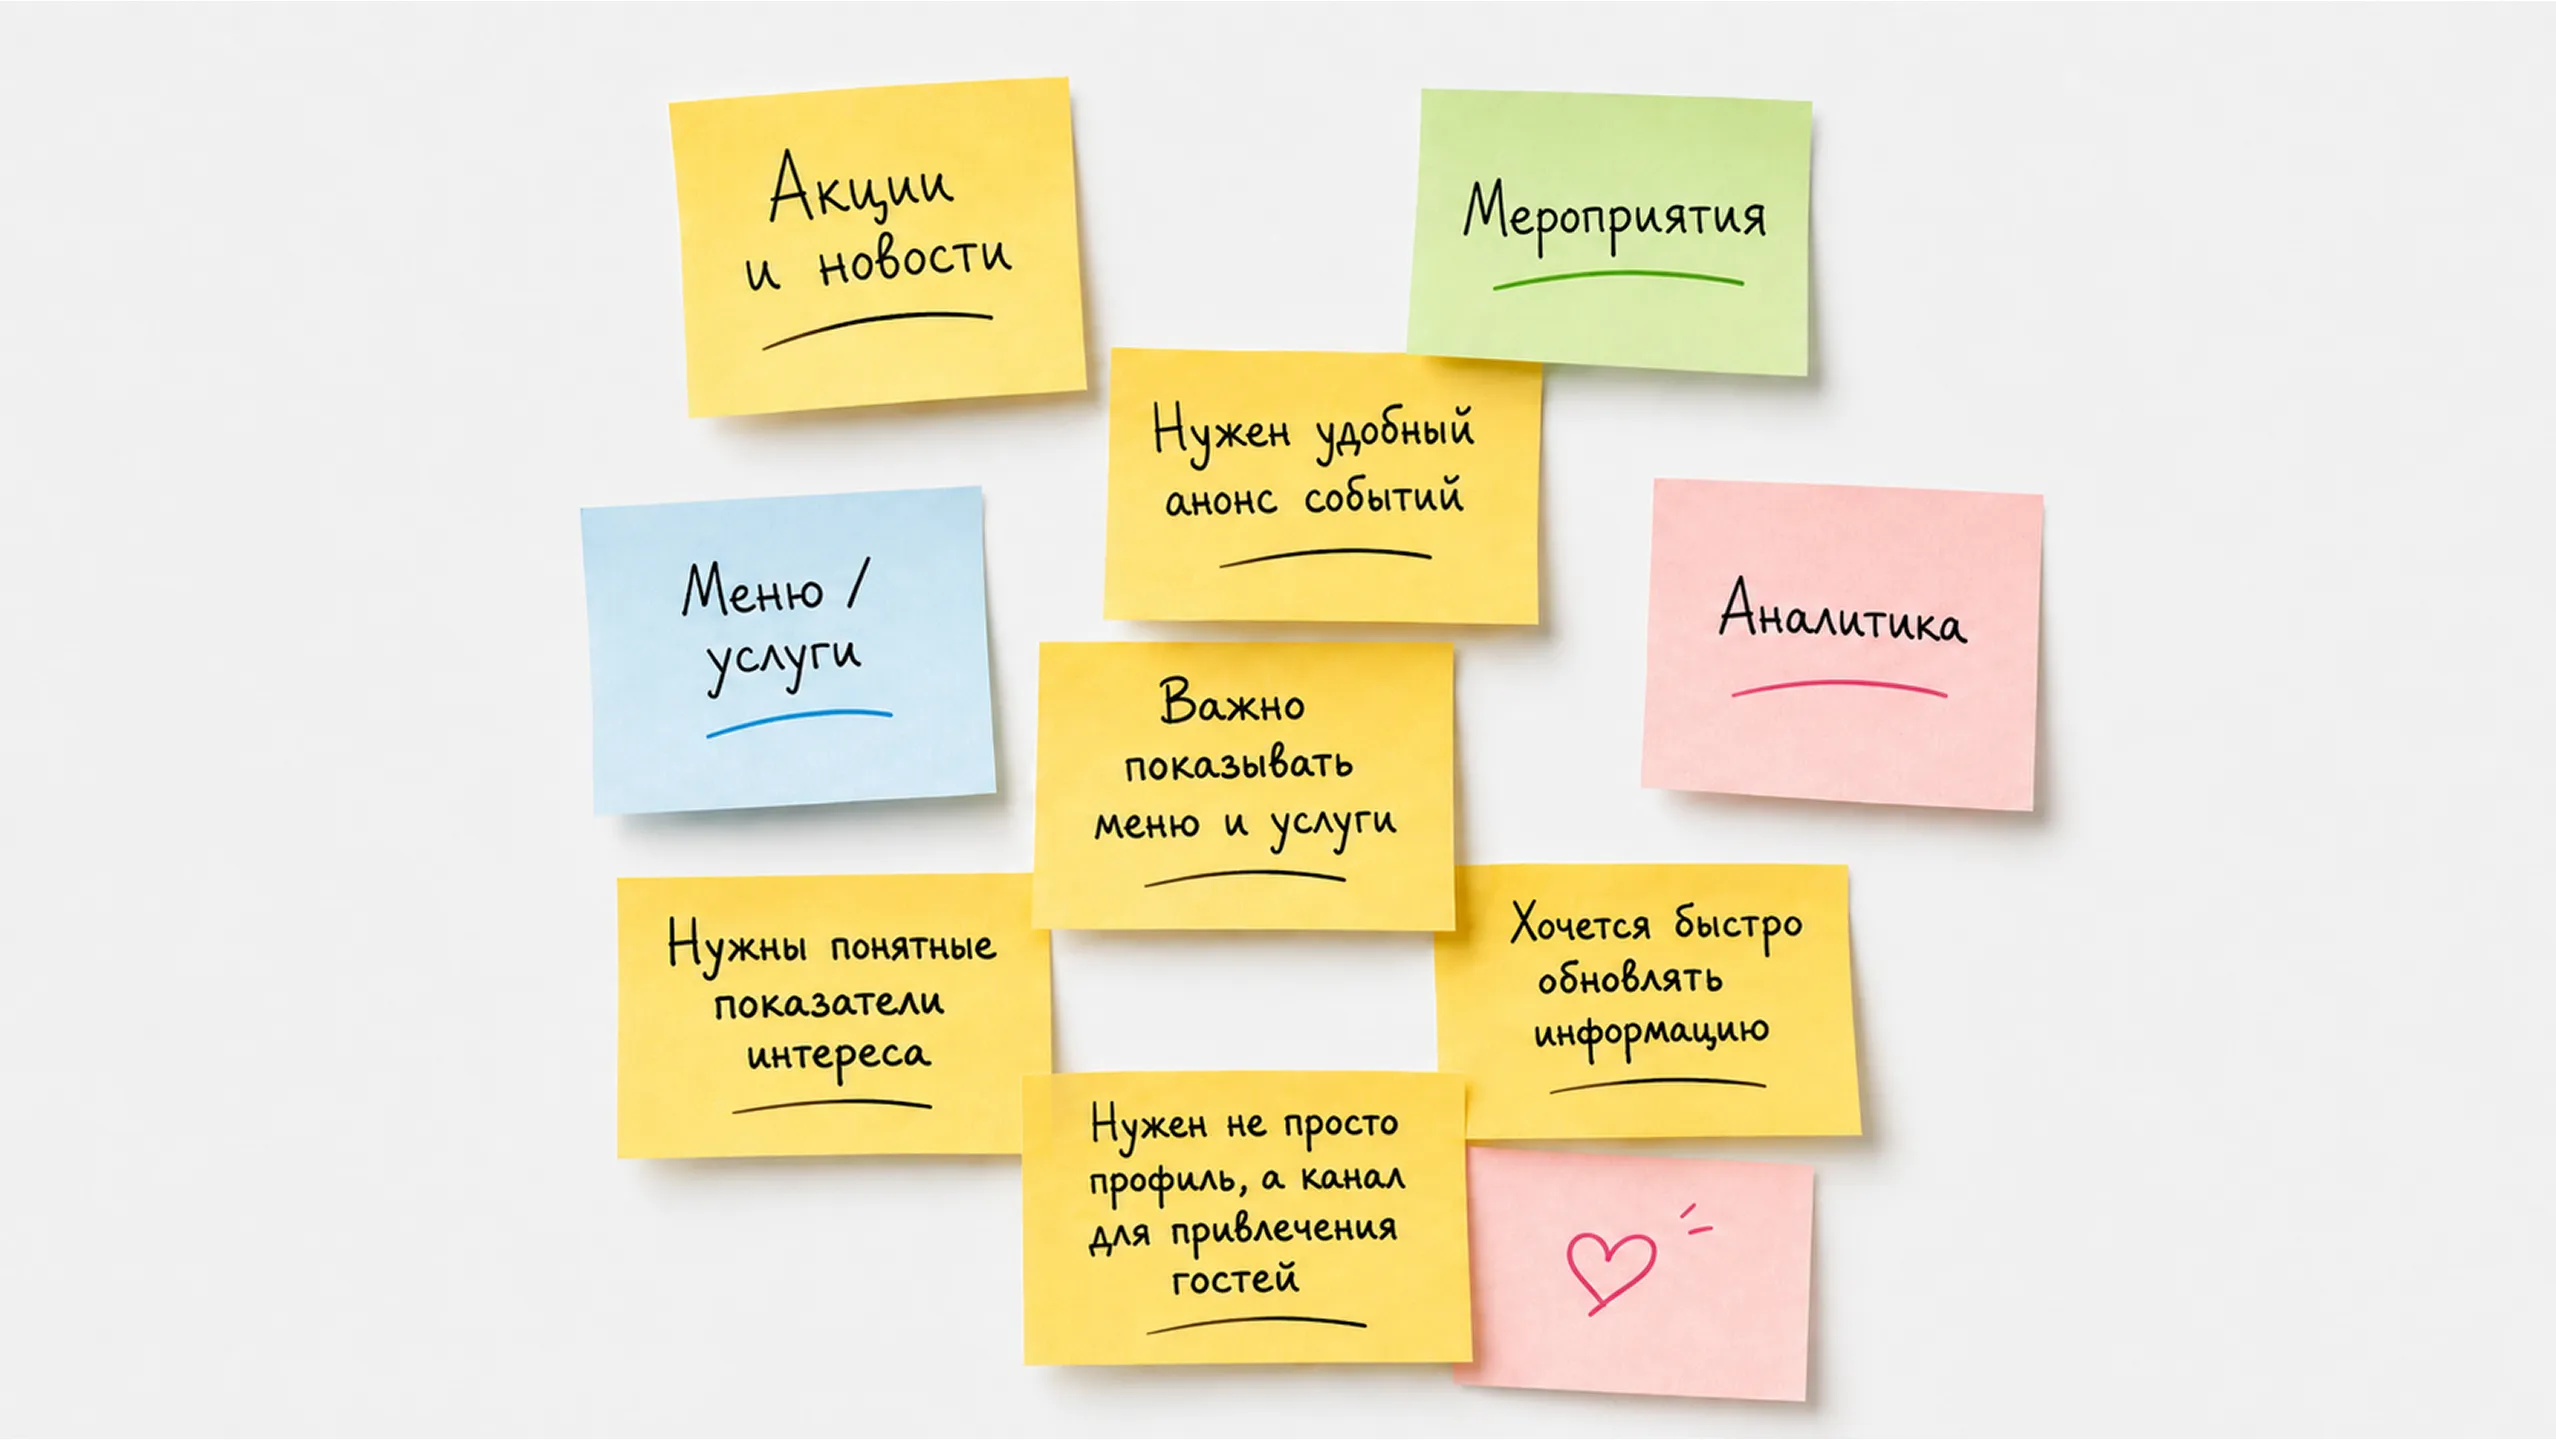 Акции
и новости
Мероприятия
Нужен удобный
анонс событий
Меню /
услуги
Аналитика
Важно
показывать
меню и услуги
Нужны понятные
показатели
интереса
Хочется быстро
обновлять
информацию
Нужен не просто
профиль, а канал
для привлечения
гостей